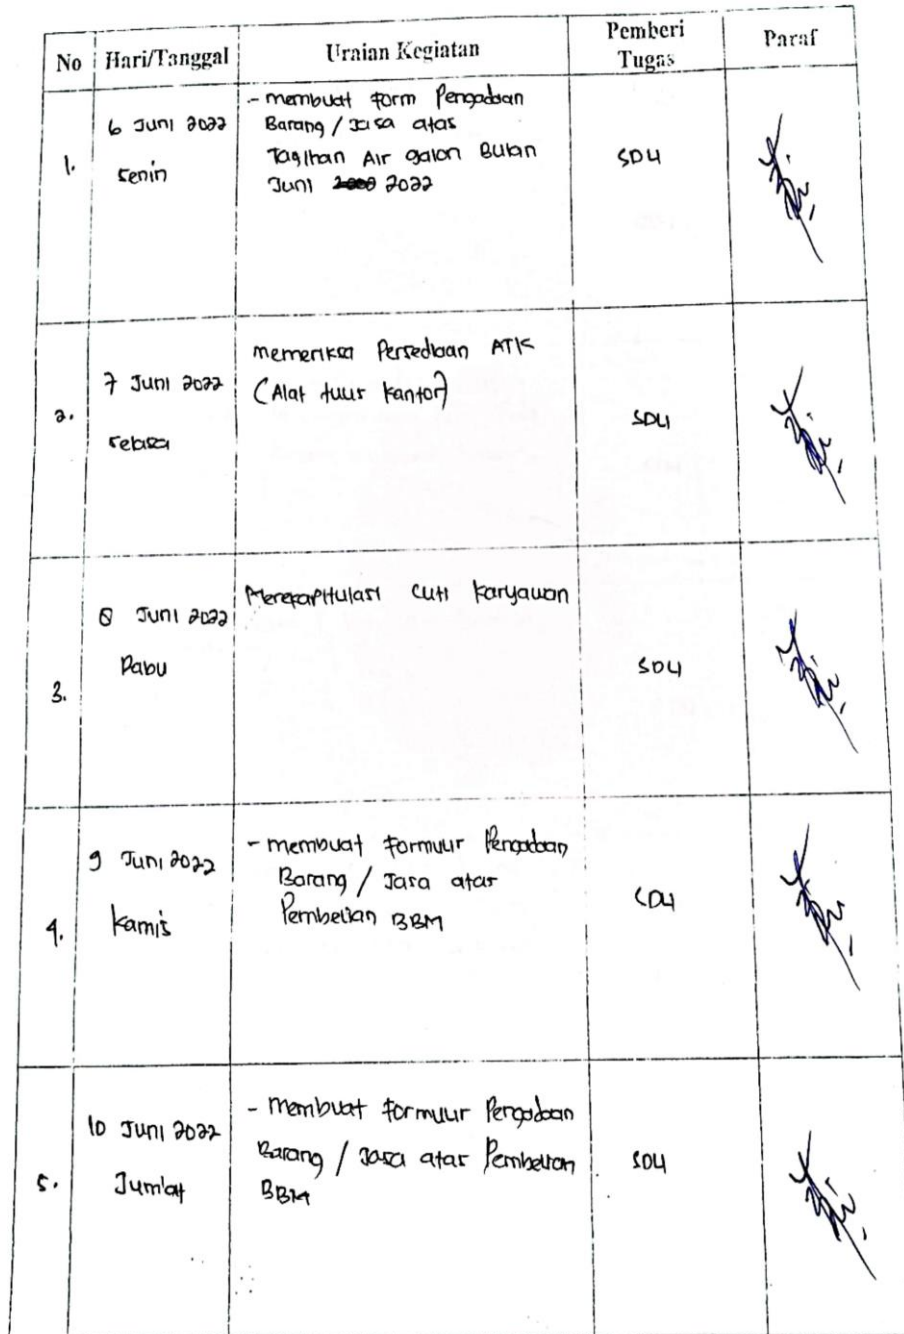 No Hari/Tanggal Uraian Kegiatan Pemberi Tugas Paraf
1. 6 Juni 2022 Senin
- membuat Form Pengadaan
Barang / Jasa atas
Tagihan Air galon Bulan
Juni 2022
SDU
2. 7 Juni 2022 Selasa
Memeriksa Persediaan ATK
(Alat tulis kantor)
SDU
3. 8 Juni 2022 Rabu
Merekapitulasi Cuti karyawan
SDU
4. 9 Juni 2022 Kamis
- membuat Formulir Pengadaan
Barang / Jasa atas
Pembelian BBM
SDU
5. 10 Juni 2022 Jum'at
- Membuat Formulir Pengadaan
Barang / Jasa atas Pembelian
BBM
SDU